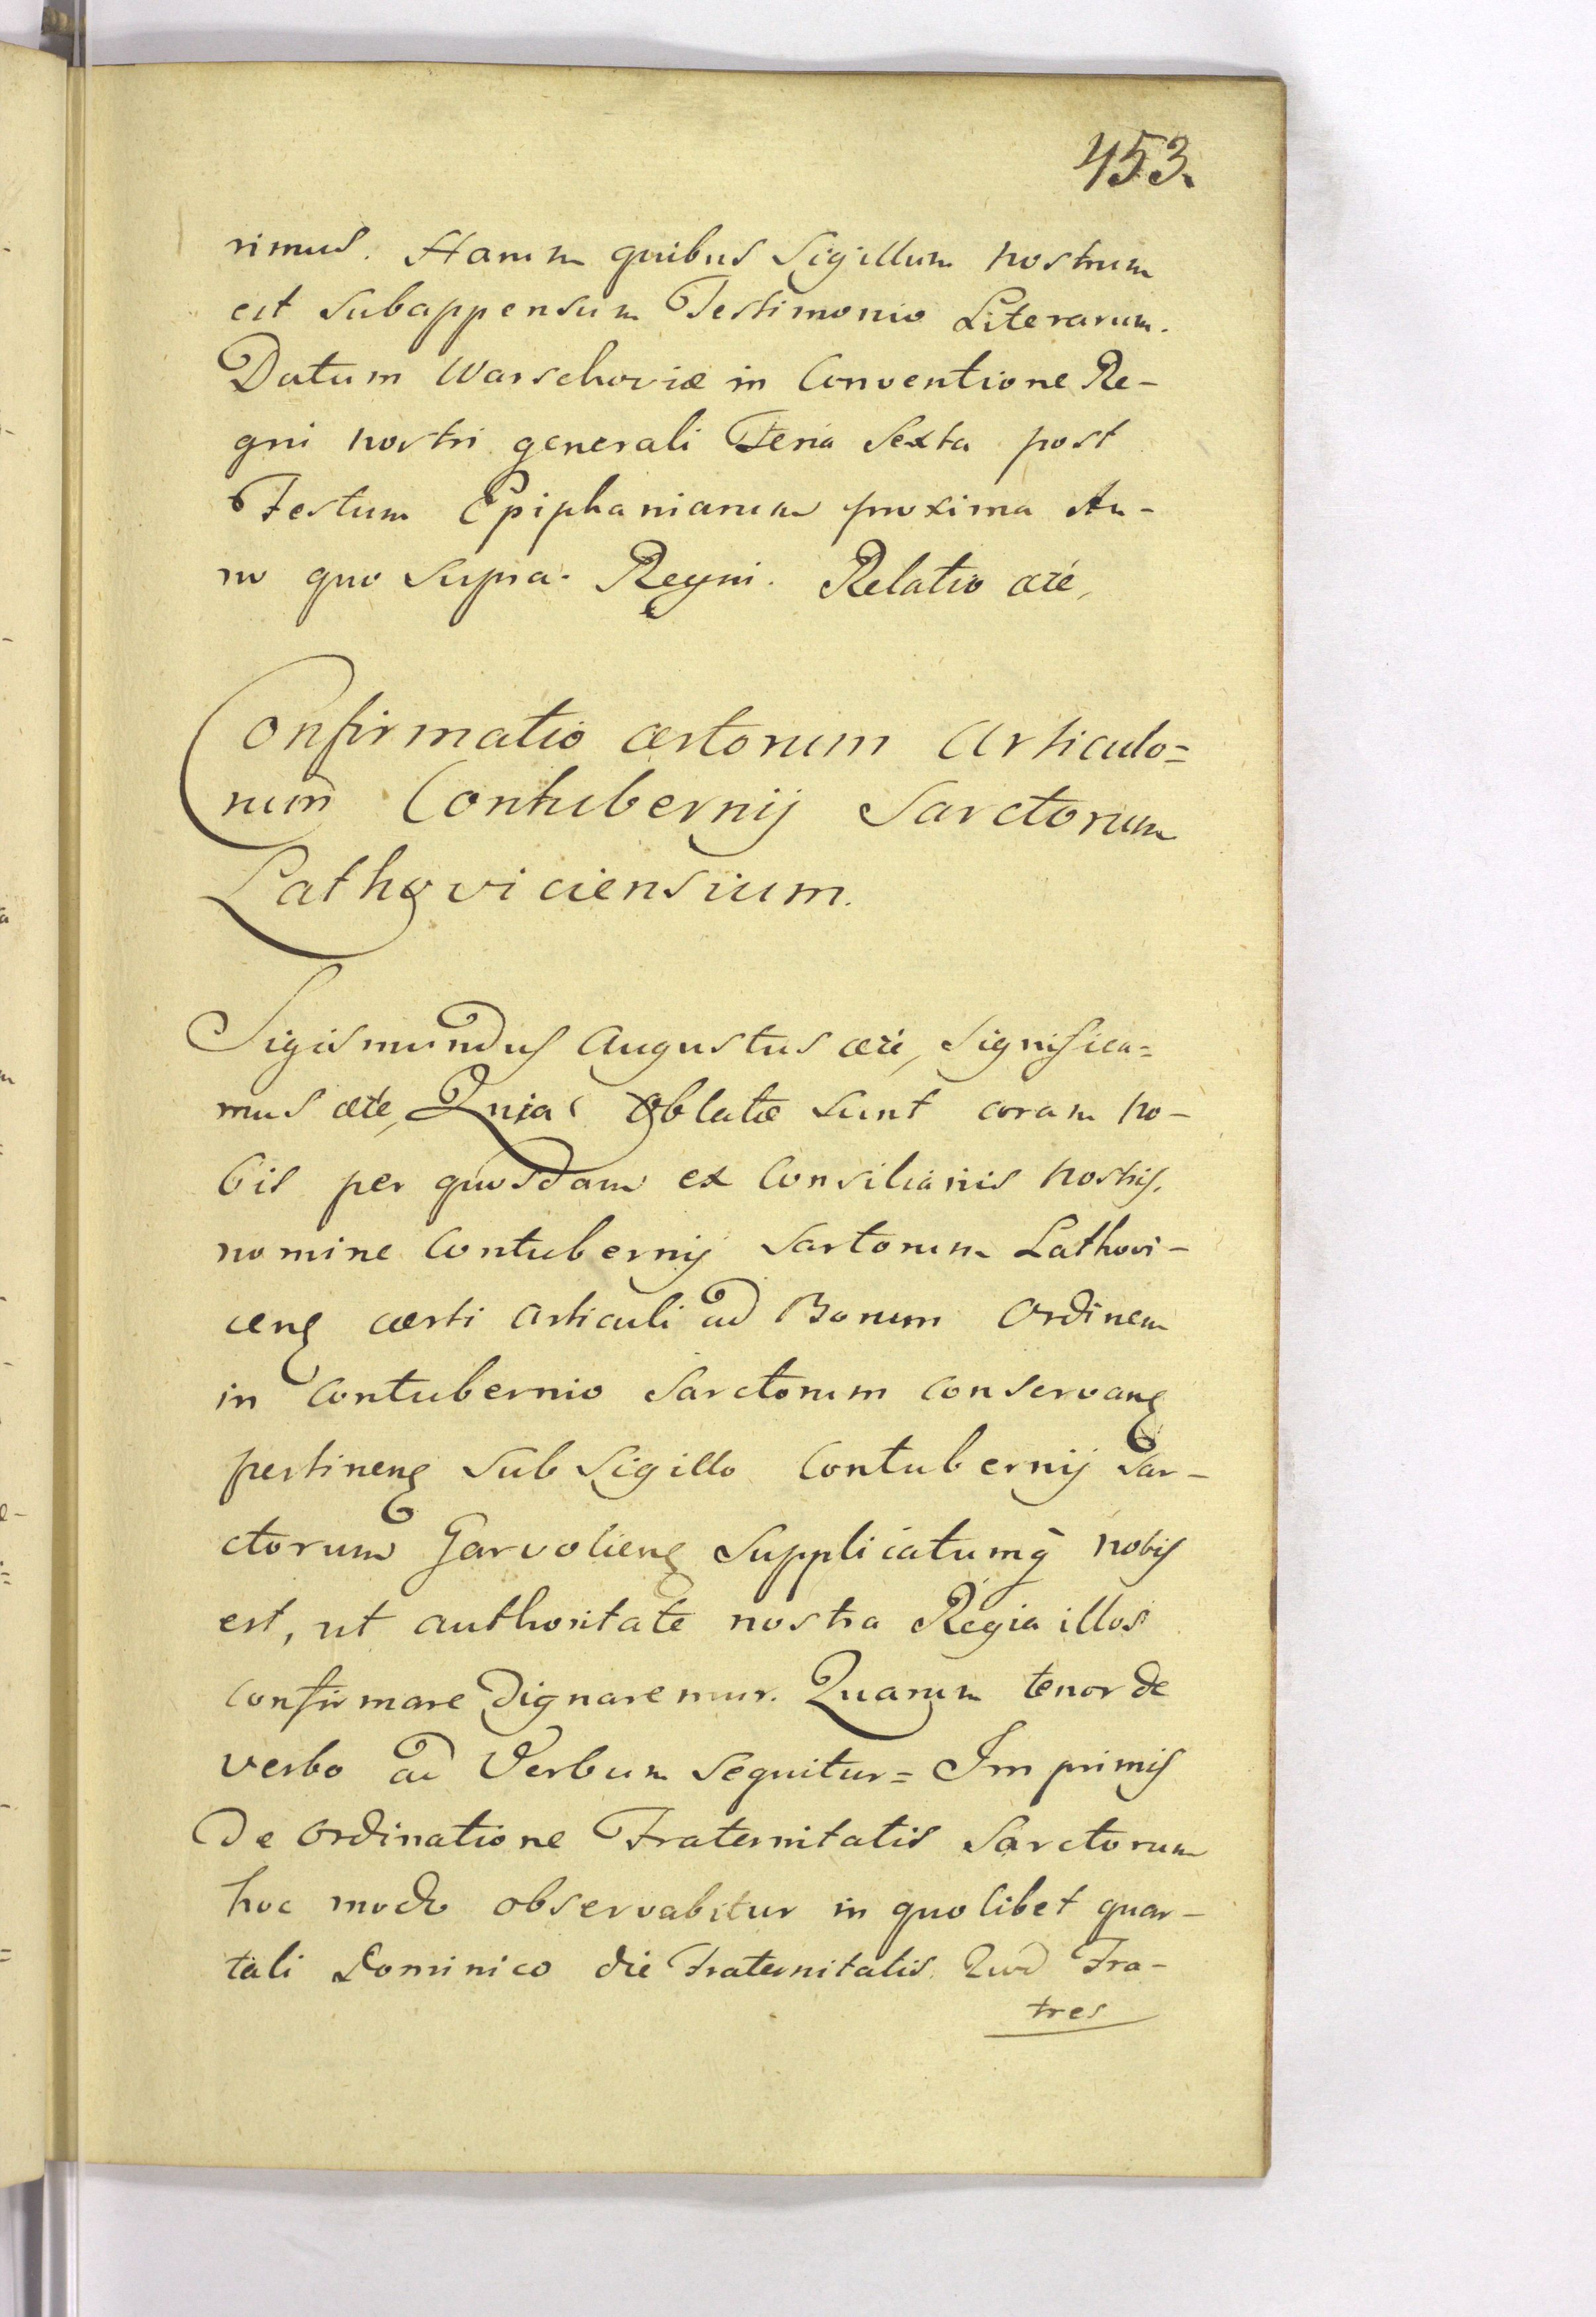 453.
rimus. Harum quibus Sigillum nostrum
est subappensum Testimonio Literarum.
Datum Warschoviæ in Conventione Re-
gni nostri generali Feria Sexta post
Festum Epiphaniarum proxima An-
no quo supra. Regni. Relatio etc,
Confirmatio certorum Articulo=
rum Contubernij Sarctorum
Lathoviciensium.
Sigismundus Augustus etc, Significa=
mus etc, Quia Oblatæ sunt coram no-
bis per quosdam ex Consiliariis nostris,
nomine Contubernij Sartorum Lathovi-
cenę certi Articuli ad Bonum Ordinem
in Contubernio Sarctorum conservanę
pertinenę sub Sigillo Contubernij Sar-
ctorum Garvolienę supplicatumq̃ nobis
est, ut authoritate nostra Regia illos
confirmare dignaremur. Quarum tenor de
verbo ad Verbum sequitur = Imprimis
De Ordinatione Fraternitatis Sarctorum
hoc modo observabitur in quolibet quar-
tali Dominico die Fraternitatis. Quod Fra-
tres